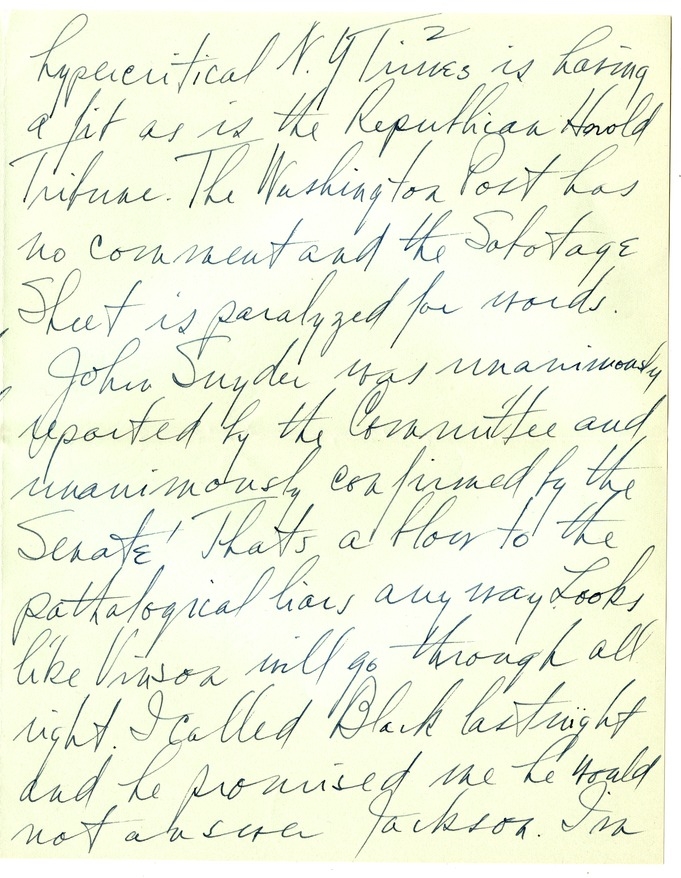 2
hypercritical N.Y Times is having
a fit as is the Republican Herold
Tribune. The Washington Post has
no comment and the Sabotage
Sheet is paralyzed for words.
John Snyder was unanimously
reported by the Committee and
unanimously confirmed by the
Senate! That's a blow to the
pathalogical liars anyway. Looks
like Vinson will go through all
right. I called Black last night
and he promised me he would
not answer Jackson. I'm